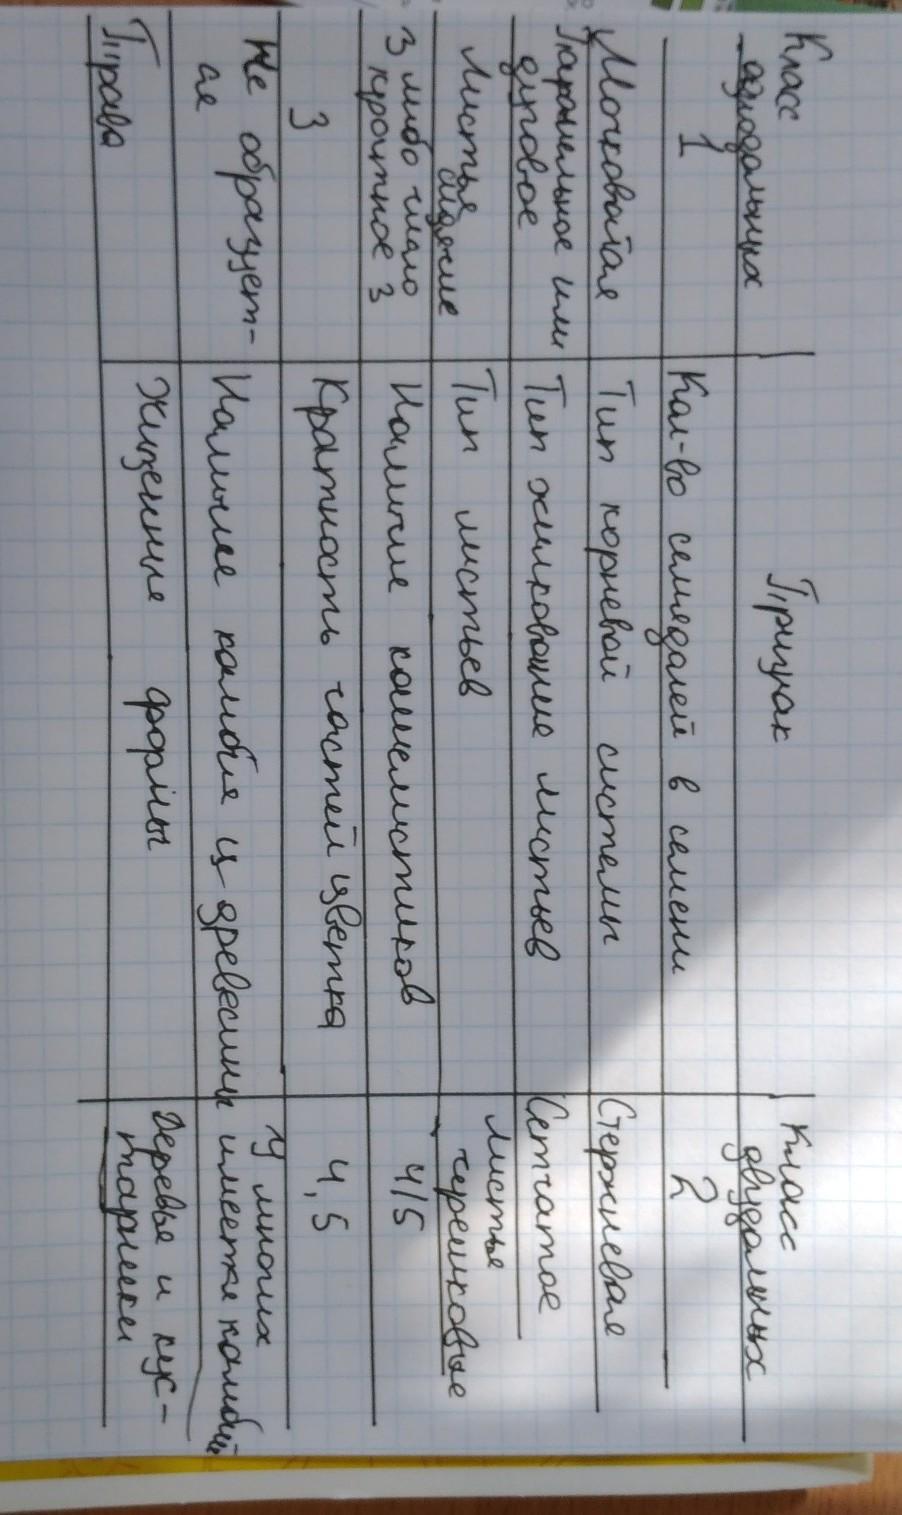 Класс
однодольных
Признак
Класс
двудольных
1
Кол-во семядолей в семени
2
Мочковатая
Тип корневой системы
Стержневая
Параллельное или
дуговое
Тип жилкование листьев
Сетчатое
Листья
Тип листьев
Листья
черешковые
3 либо число
кратное 3
Наличие чашелистиков
4/5
3
Кратность частей цветка
4,5
Не образует-
ся
Наличие камбия и древесины
У многих
имеется камбий
Трава
Жизненные формы
Деревья и кус-
тарники